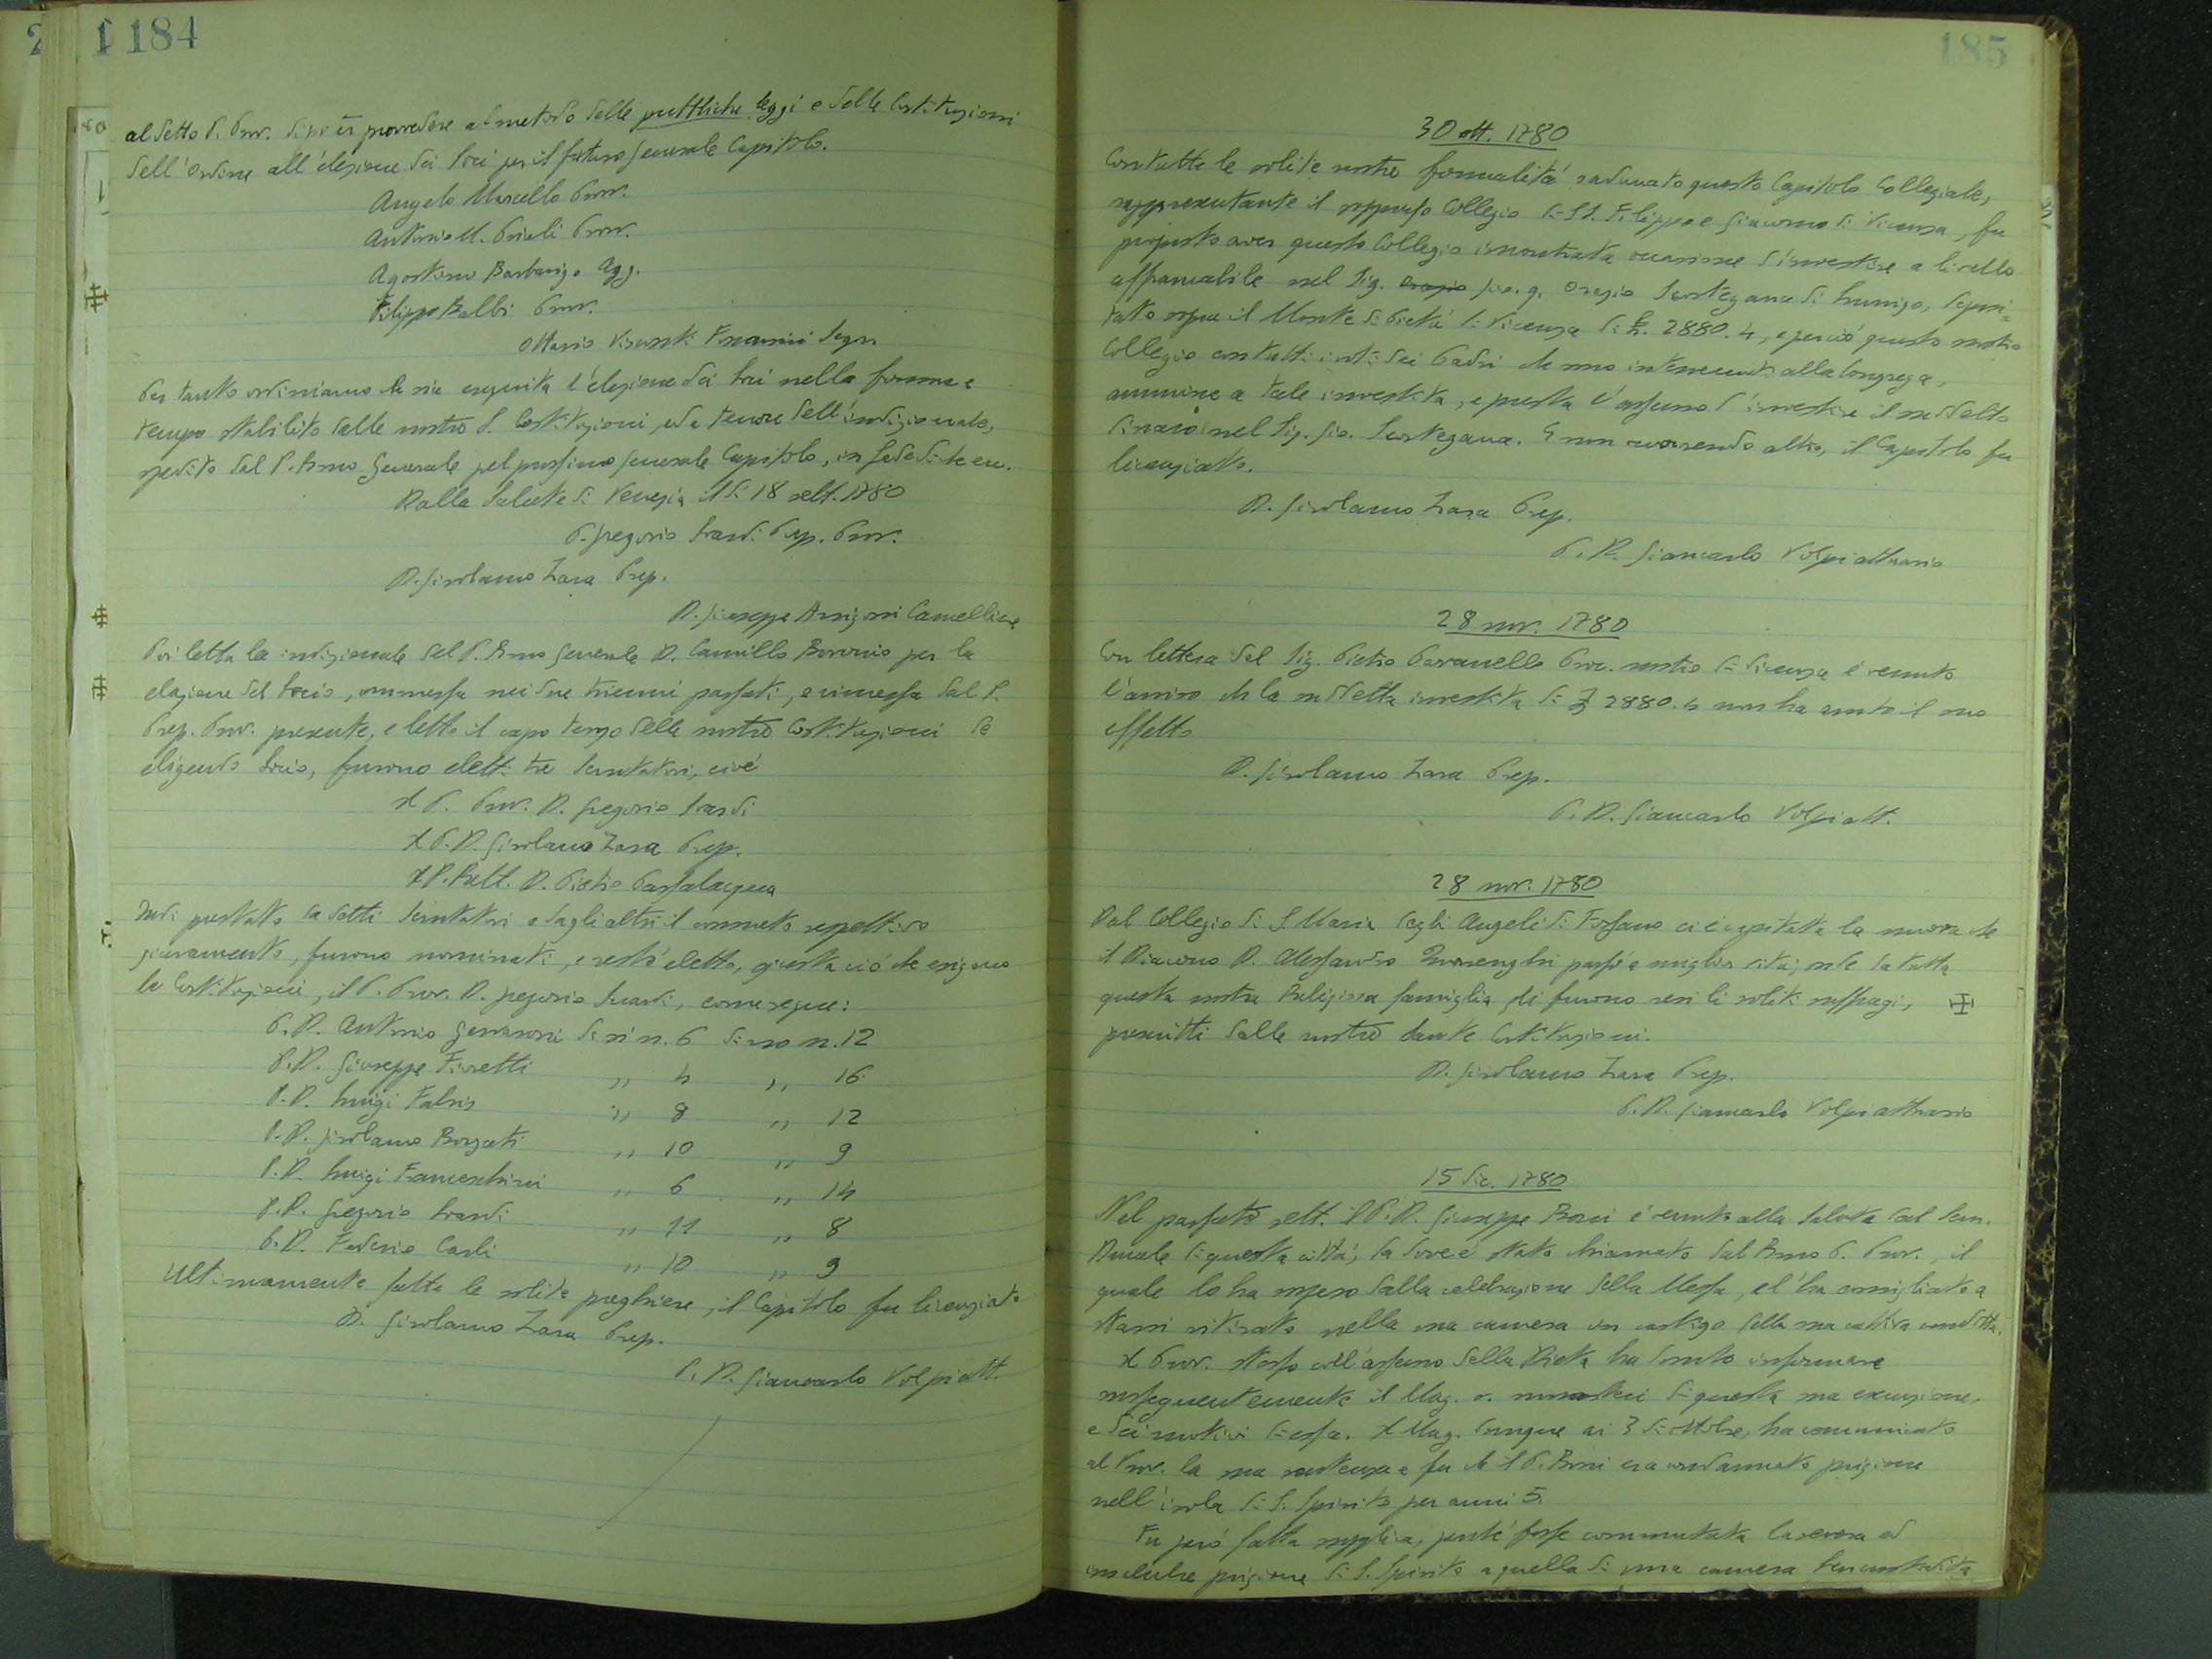 184
al detto P. Prov. di poter provvedere a metodo delle pubbliche leggi e delle Costituzioni
dell'Ordine all'elezione dei Soci per il futuro generale Capitolo.
Angelo Marcello Prov.
Antonio M. Prioli Prov.
Agostino Barbarigo Agg.
Filippo Balbi Prov.
Ottavio Segr.
Per tanto ordiniamo che sia eseguita l'elezione dei Soci nella forma e
tempo stabilito dalle nostre S. Costituzioni, ed a tenore dell'indizionale,
spedito dal P. Rmo generale pel prossimo generale Capitolo, in fede di che ecc.
Dalla Salute di Venezia il dì 18 sett. 1780
P. Gregorio Suardi Prep. Prov.
D. Girolamo Zara Prep.
D. Giuseppe Arrigoni Cancelliere
Poi letta la indizionale del P. Rmo generale D. Camillo Bovonio per la
elezione del Socio, ommessa nei due trienni passati, e rimessa dal P.
Prep. Prov. presente, e letto il capo terzo delle nostre Costituzioni de
eligendo Socio, furono eletti tre Scrutatori, cioè
Il P. Prov. D. Gregorio Suardi
Il P. D. Girolamo Zara Prep.
Il P. Rett. D. Pietro Passalacqua
Indi prestato da detti Scrutatori e dagli altri il consueto respettivo
giuramento, furono nominati, e restò eletto, giusta ciò che esigono
le Costituzioni, il P. Prov. D. Gregorio Suardi, come segue:
P. D. Antonio Gervasoni di sì n. 6 di no n. 12
P. D. Giuseppe Fioretti ,, 4 ,, 16
P. D. Luigi Fabris ,, 8 ,, 12
P. D. Girolamo Borzati ,, 10 ,, 9
P. D. Luigi Franceschini ,, 6 ,, 14
P. D. Gregorio Suardi ,, 11 ,, 8
P. D. Federico Carli ,, 10 ,, 9
Ultimamente fatte le solite preghiere, il Capitolo fu licenziato
D. Girolamo Zara Prep.
P. D. Giancarlo Volpi att.
185
30 ott. 1780
Con tutte le solite nostre formalità radunato questo Capitolo Collegiale,
rappresentante il soppresso Collegio di SS. Filippo e Giacomo di Vicenza, fu
proposto aver questo Collegio incontrata occasione d'investire a livello
affrancabile nel Sig. Orazio Gio. q. Orazio Sartegana di Lunigo, deposi=
tato sopra il Monte di Pietà di Vicenza di L. 2880.4, e perciò questo nostro
Collegio con tutti i voti dei Padri che sono intervenuti alla Congrega,
annuine a tale investita, e presta l'assenso d'investire il suddetto
dinaro nel Sig. Gio. Sartegana. E non occorrendo altro, il Capitolo fu
licenziato.
D. Girolamo Zara Prep.
P. D. Giancarlo Volpi attuario
28 nov. 1780
Con lettera del Sig. Pietro Proc. nostro di Vicenza è venuto
l'avviso che la suddetta investita di L 2880.4 non ha avuto il suo
effetto
D. Girolamo Zara Prep.
P. D. Giancarlo Volpi att.
28 nov. 1780
Dal Collegio di S. Maria degli Angeli di Fossano ci è capitata la nuova che
il Diacono D. Alessandro Quarenghi passò a miglior vita; onde da tutta
questa nostra Religiosa famiglia gli furono resi li soliti suffragi,
prescritti dalle nostre Sante Costituzioni.
D. Girolamo Zara Prep.
P. D. Giancarlo Volpi attuario
15 dic. 1780
Nel passato sett. il P. D. Giuseppe è venuto alla Salute dal Sem.
Ducale di questa città, da dove è stato chiamato dal Rmo P. Prov., il
quale lo ha sospeso dalla celebrazione della Messa, e l'ha consigliato a
starsi ritirato nella sua camera in castigo della sua cattiva condotta.
Il Prov. stesso coll'assenso della Dieta ha dovuto informare
susseguentemente il Mag. s. monasteri di questa sua excursione,
e dei motivi di essa. Il Mag. dunque ai 3 di ottobre, ha comunicato
al Prov. la sua sentenza e fu che il P. era condannato prigione
nell'isola di S. Spirito per anni 5.
Fu però fatta supplica, perché fosse commutata la severa ed
insalubre prigione di S. Spirito a quella di una camera ben custodita